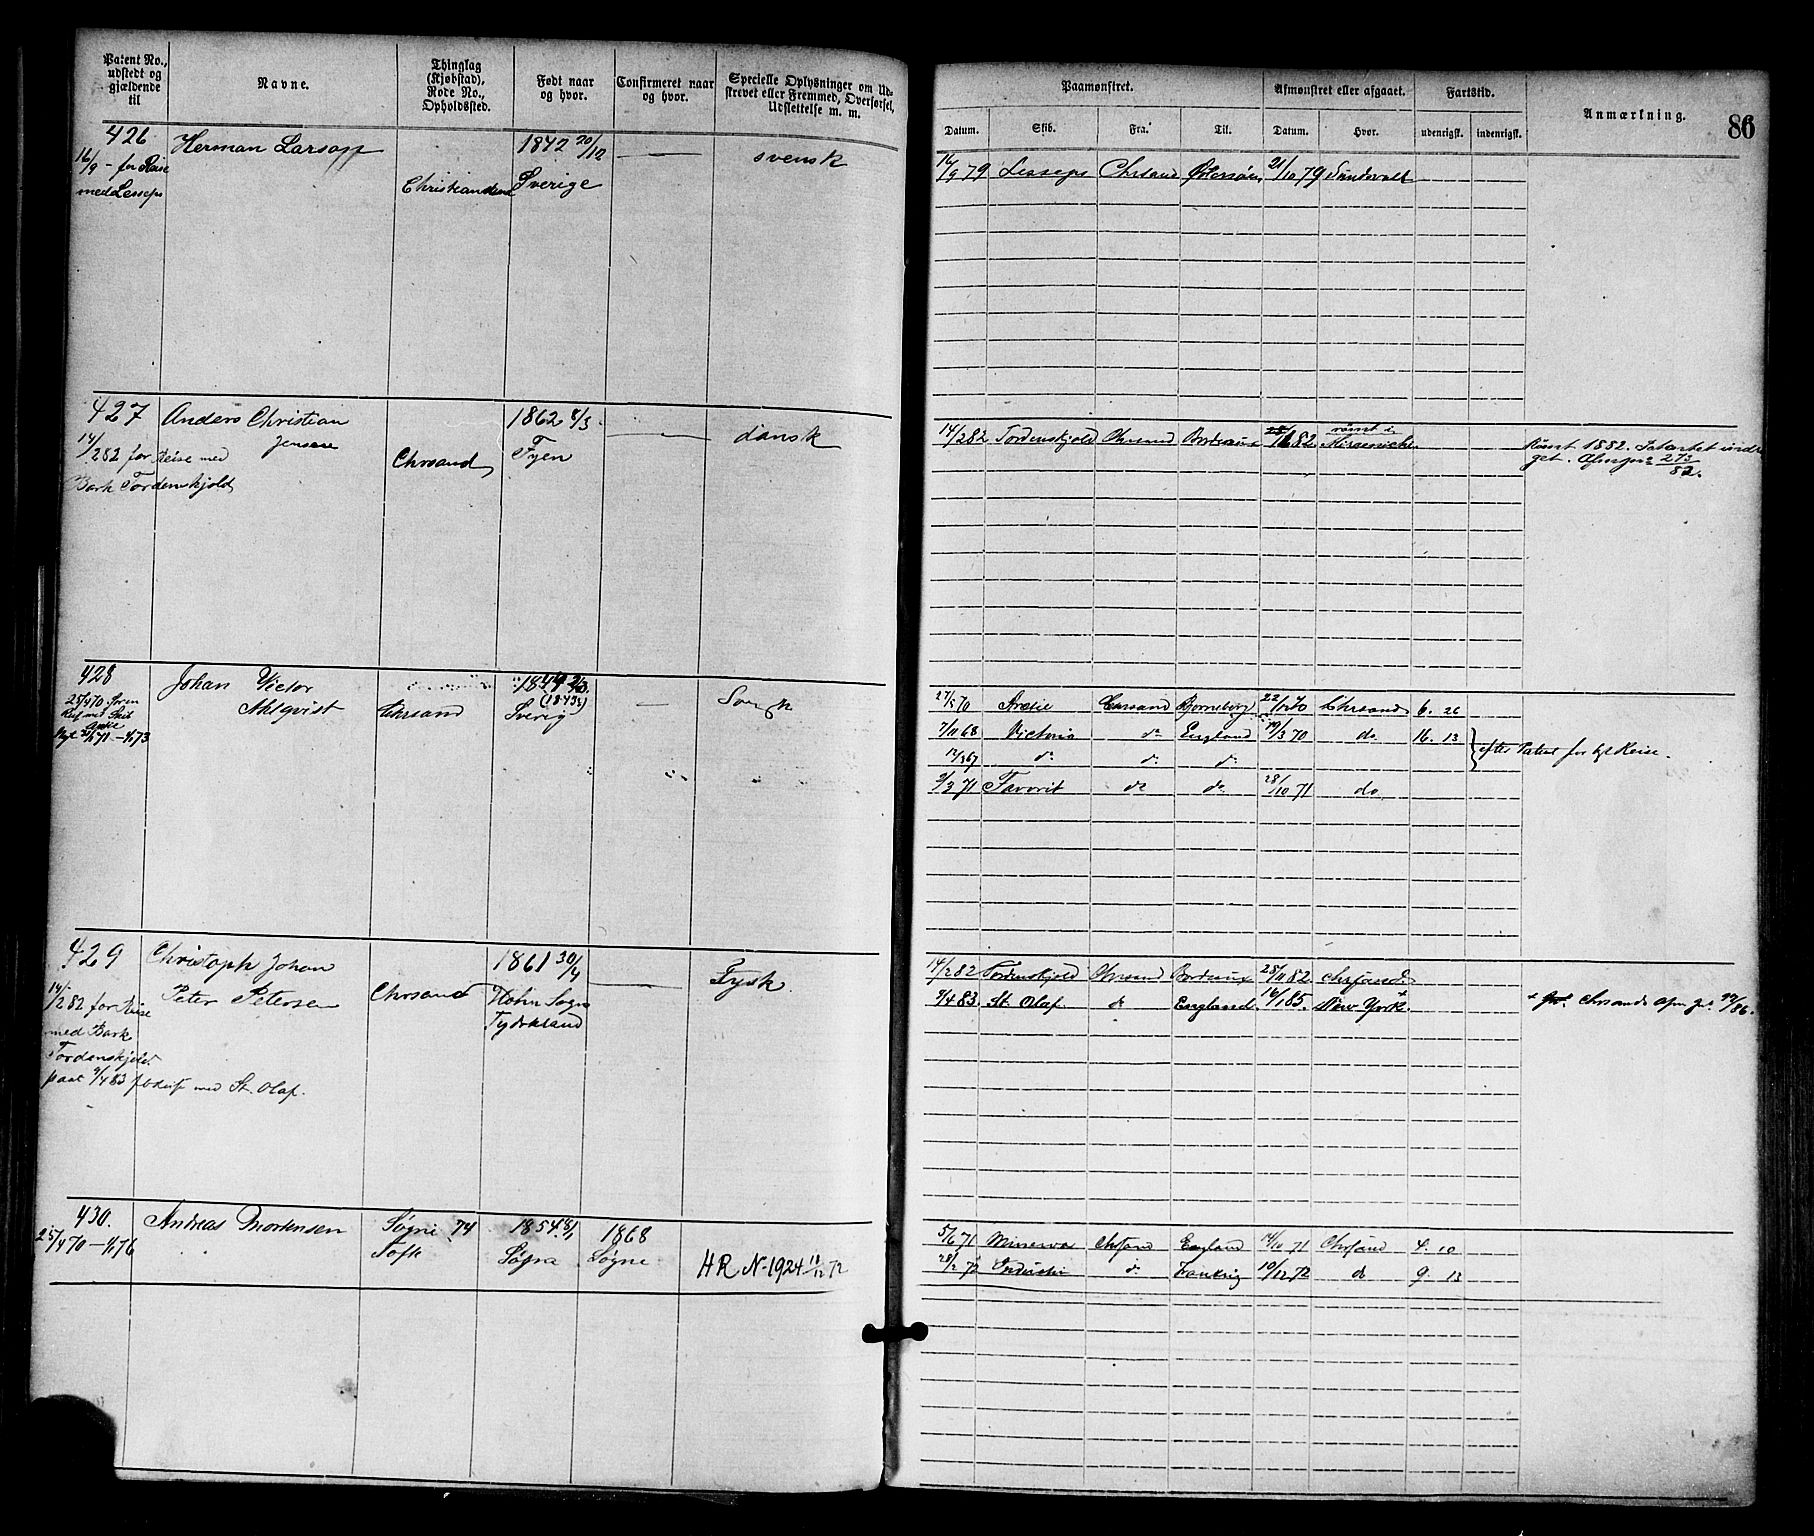 Patent No., udstedt og gjældende til
Navne.
Thinglag (Kjøbstad), Rode No., Opholdssted.
Født naar og hvor.
Confirmeret naar og hvor.
Specielle Oplysninger om Udskrevet eller Fremmed, Overførsel, Udslettelse m. m.
Paamønstret.
Afmønstret eller afgaaet.
Fartstid.
Anmærkning.
86
Datum. Skib. Fra. Til. Datum. Hvor. udenrigsk. indenrigsk.
426 Herman Larson 1842 20/12 — svensk
16/9 - for Reise
med Lesseps Christiansand Sverige
16/9 79 Lesseps Chrsand 21/10 79 Sundsvall
427 Anders Christian 1862 8/3 — dansk
Jensen
14/2 82 for Reise med Chrsand Fyen
Bark Tordenskjold
14/2 82 Tordenskjold Chrsand Bordeaux 82 rømt i
Rømt 1882.
82.
428 Johan Victor Sverig — Svensk
Ahlqvist Chrsand
27/5 70 Chrsand Bjorneborg Chrsand 6. 26
7/11 68 Victoria do England 19/3 70 do 16. 13
12/3 67 do do do efter Patent for Reise.
9/3 71 Favorit do do 28/10 71 do
429 Christoph Johan 1861 30/4 — Tysk
Peter Petersen Chrsand Sogn
14/2 82 for Reise
med Bark
Tordenskjold
9/4 83 med St. Olaf.
14/2 82 Tordenskjold Chrsand Bordeaux 28/11 82 Chrsand
9/4 83 St. Olaf do England 16/1 85. New York +
+ Chrsands
430. Andreas Mortensen Søgne 74 1854 8/1 1868
25/4 70 - 1/1 76 Toft Søgne Søgne HR No 1924 11/12 72
5/6 71 Minerva Chrsand England 14/10 71 Chrsand 4. 10
28/2 72 Industri do Frankrig 10/12 72 do 9. 13